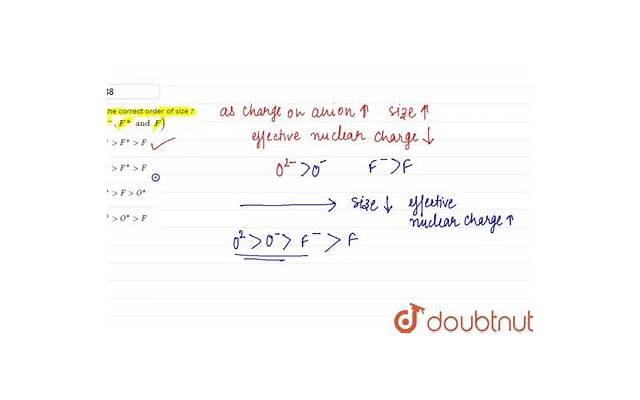 38
he correct order of size ?
⁻, F* and F)
* > F* > F
> F* > F
* > F > O*
* > O* > F
as charge on anion ↑ size ↑
effective nuclear charge ↓
O²⁻ > O⁻ F⁻ > F
⟶ size ↓ effective
nuclear charge ↑
O² > O⁻ > F⁻ > F
doubtnut